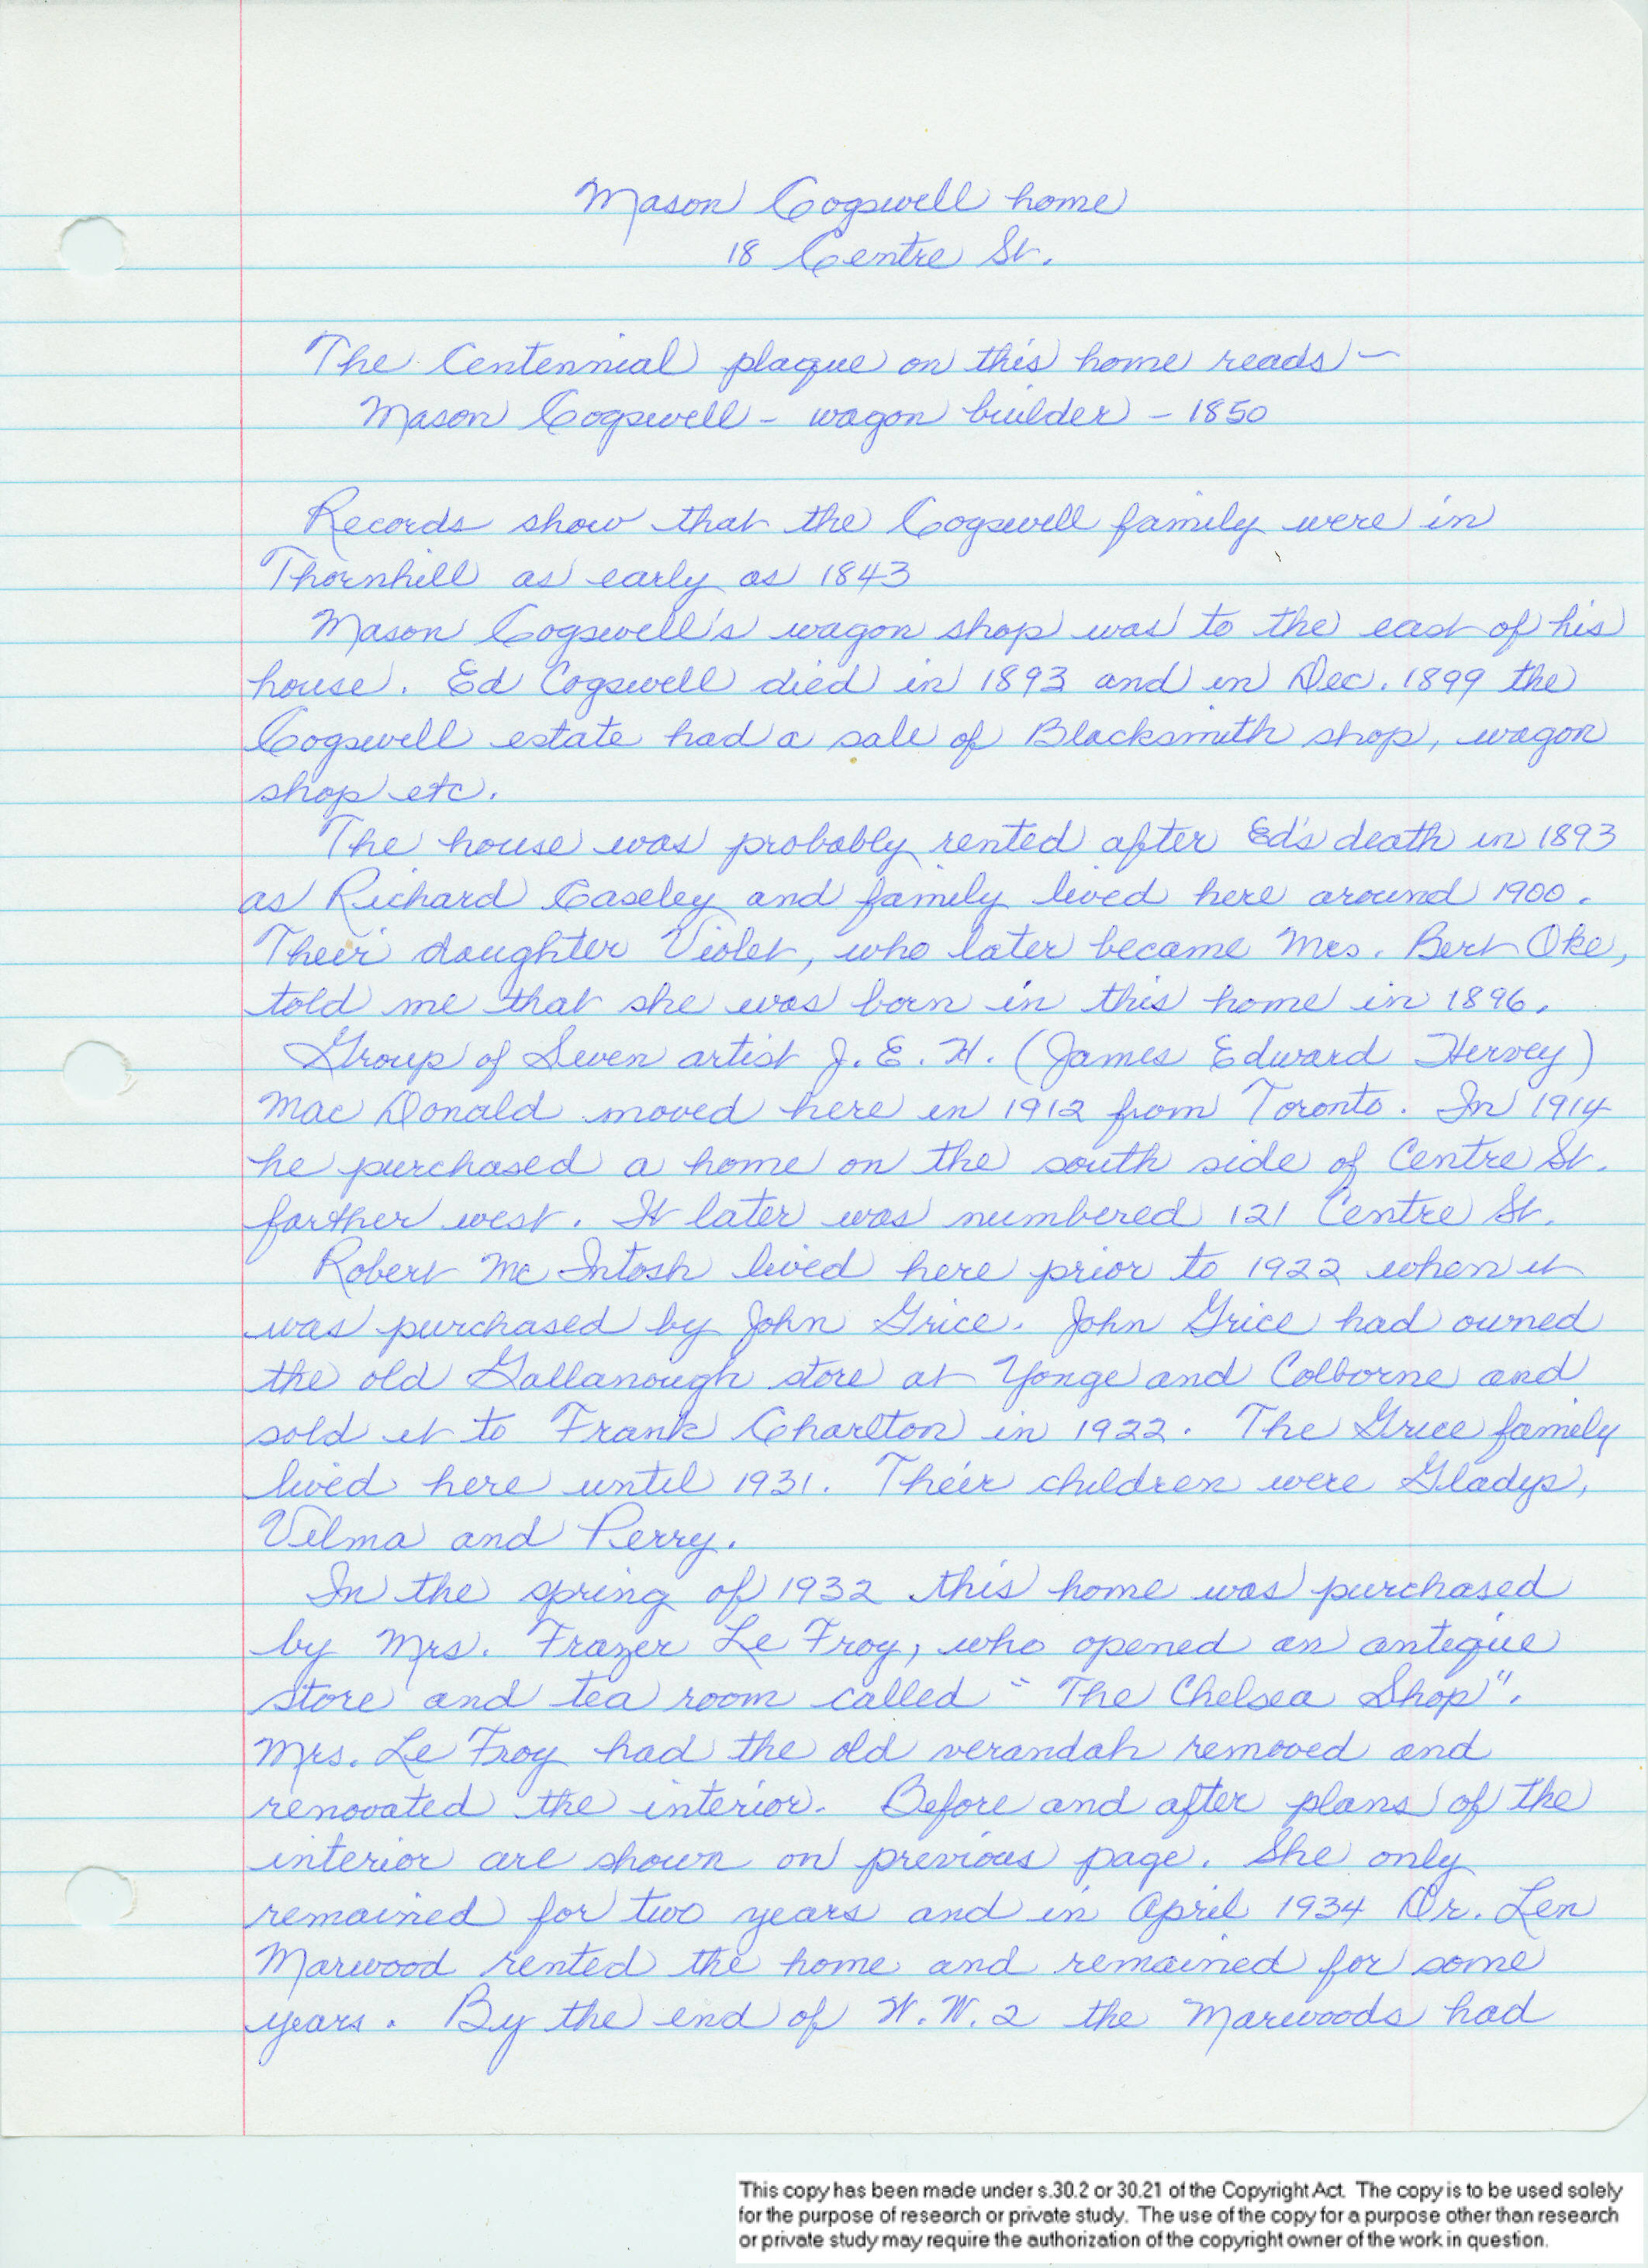 Mason Cogswell home
18 Centre St.
The Centennial plaque on this home reads -
Mason Cogswell - wagon builder - 1850
Records show that the Cogswell family were in
Thornhill as early as 1843
Mason Cogswell's wagon shop was to the east of his
house. Ed Cogswell died in 1893 and in Dec. 1899 the
Cogswell estate had a sale of Blacksmith shop, wagon
shop etc.
The house was probably rented after Ed's death in 1893
as Richard Caseley and family lived here around 1900.
Their daughter Violet, who later became Mrs. Bert Oke,
told me that she was born in this home in 1896.
Group of Seven artist J. E. H. (James Edward Hervey)
Mac Donald moved here in 1912 from Toronto. In 1914
he purchased a home on the south side of Centre St.
farther west. It later was numbered 121 Centre St.
Robert Mc Intosh lived here prior to 1922 when it
was purchased by John Grice. John Grice had owned
the old Gallanough store at Yonge and Colborne and
sold it to Frank Charlton in 1922. The Grice family
lived here until 1931. Their children were Gladys,
Velma and Perry.
In the spring of 1932 this home was purchased
by Mrs. Frazer Le Froy, who opened an antique
store and tea room called "The Chelsea Shop".
Mrs. Le Froy had the old verandah removed and
renovated the interior. Before and after plans of the
interior are shown on previous page. She only
remained for two years and in April 1934 Dr. Len
Marwood rented the home and remained for some
years. By the end of W.W. 2 the Marwoods had
This copy has been made under s.30.2 or 30.21 of the Copyright Act. The copy is to be used solely
for the purpose of research or private study. The use of the copy for a purpose other than research
or private study may require the authorization of the copyright owner of the work in question.